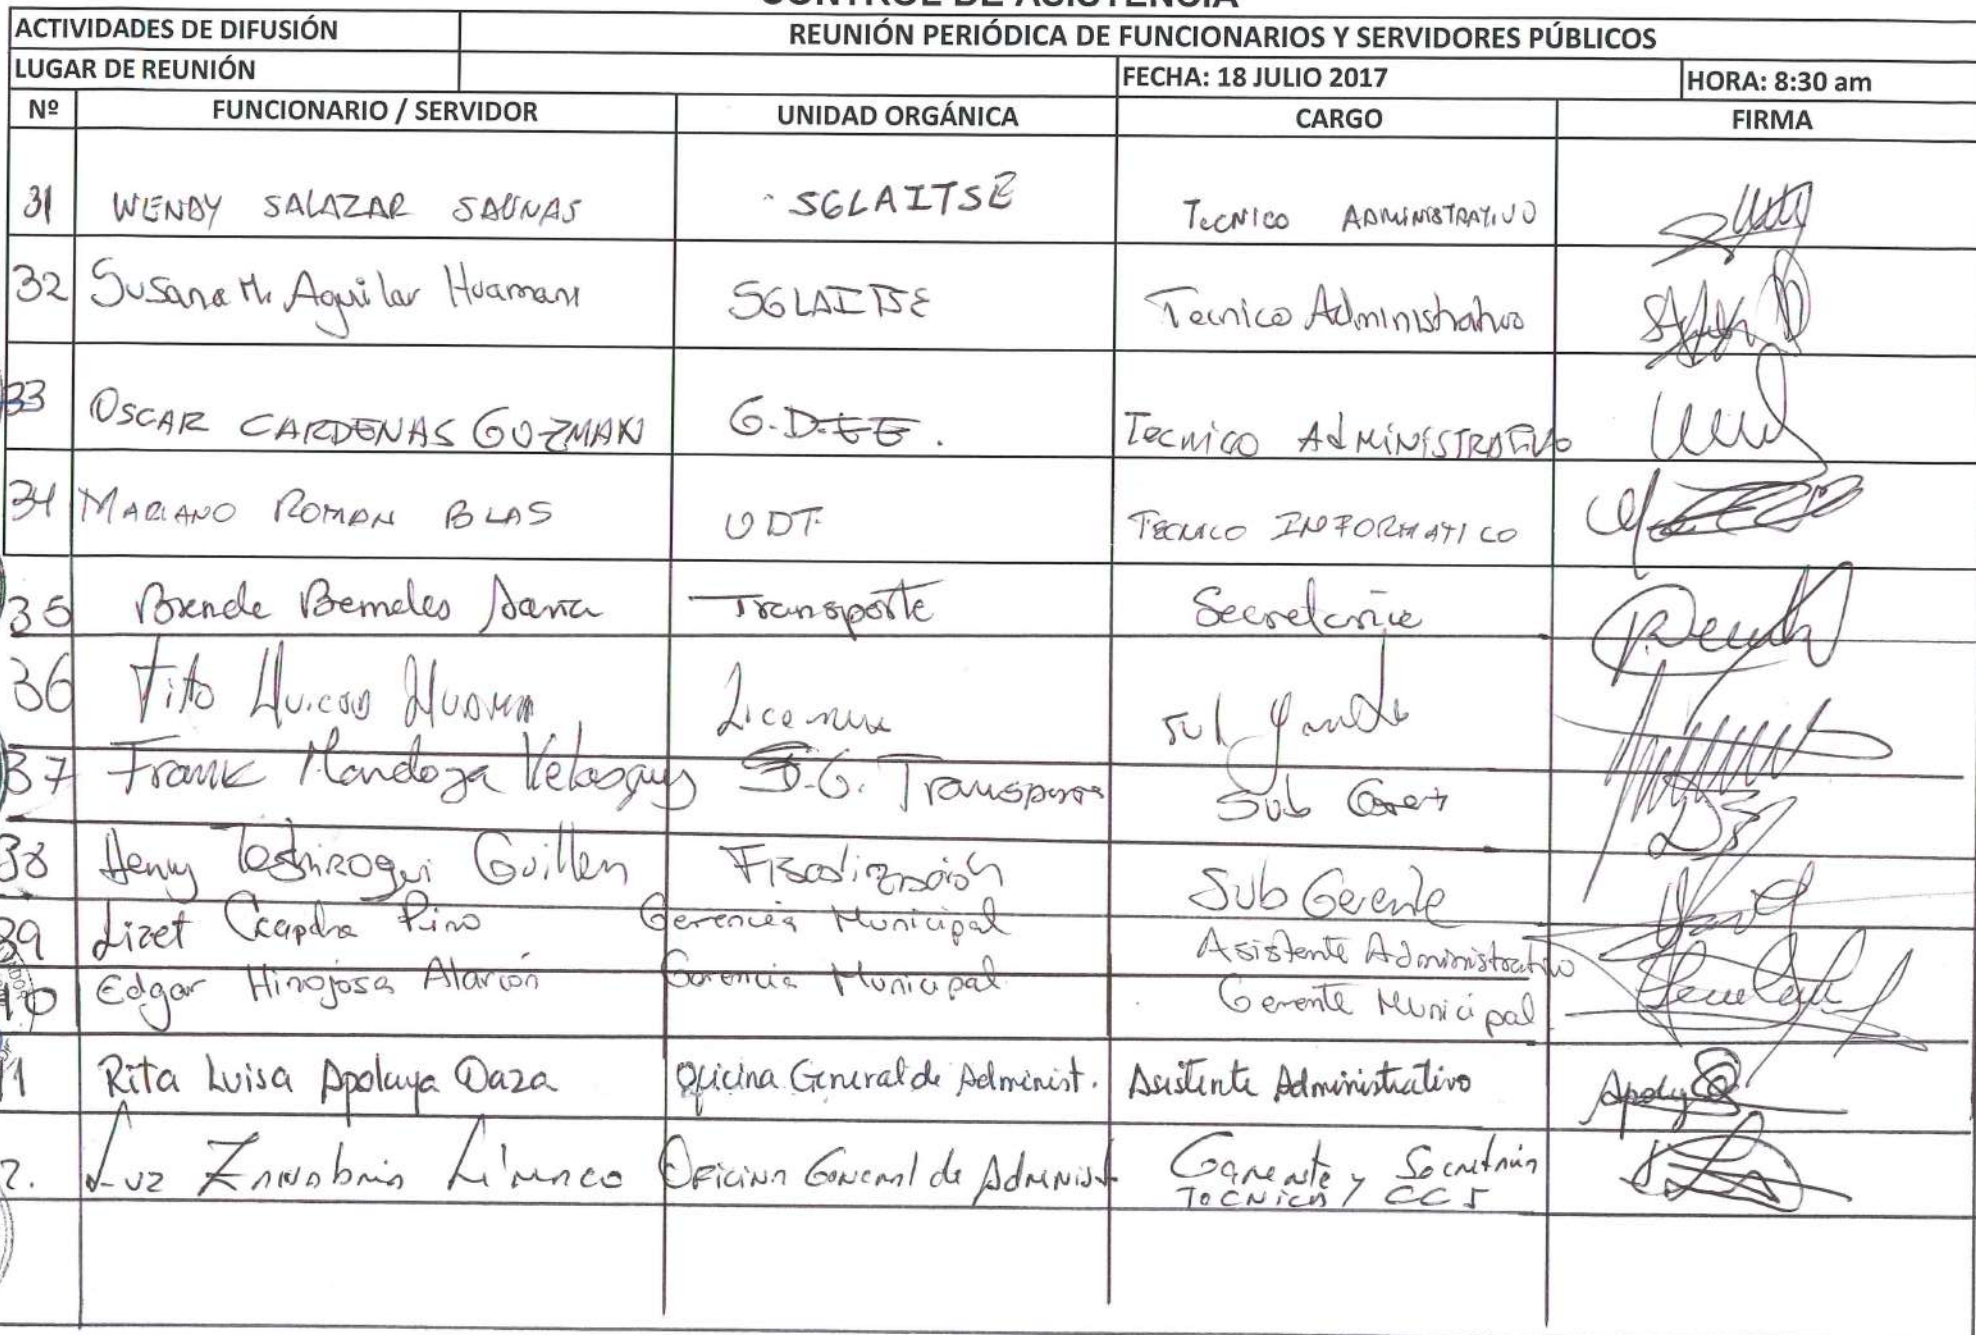 CONTROL DE ASISTENCIA
ACTIVIDADES DE DIFUSIÓN REUNIÓN PERIÓDICA DE FUNCIONARIOS Y SERVIDORES PÚBLICOS
LUGAR DE REUNIÓN FECHA: 18 JULIO 2017 HORA: 8:30 am
Nº FUNCIONARIO / SERVIDOR UNIDAD ORGÁNICA CARGO FIRMA
31 WENDY SALAZAR SALINAS SGLAITSE TECNICO ADMINISTRATIVO
32 Susana M. Aguilar Huamani SGLAITSE Tecnico Administrativo
33 OSCAR CARDENAS GUZMAN G.D.E.E. TECNICO ADMINISTRATIVO
34 MARIANO ROMAN BLAS UDT TECNICO INFORMATICO
35 Transporte Secretaria
36 Tito
37 Frank Mendoza Velasquez S.G. Transporte Sub
38 Henry Guillen Fiscalización Sub Gerente
39 Lizet Pino Gerencia Municipal Asistente Administrativo
Edgar Hinojosa Alarcón Gerencia Municipal Gerente Municipal
1 Rita Luisa Apolaya Daza Oficina General de Administ. Asistente Administrativo
2. Luz Oficina General de Administ Gerente y
Tecnica y